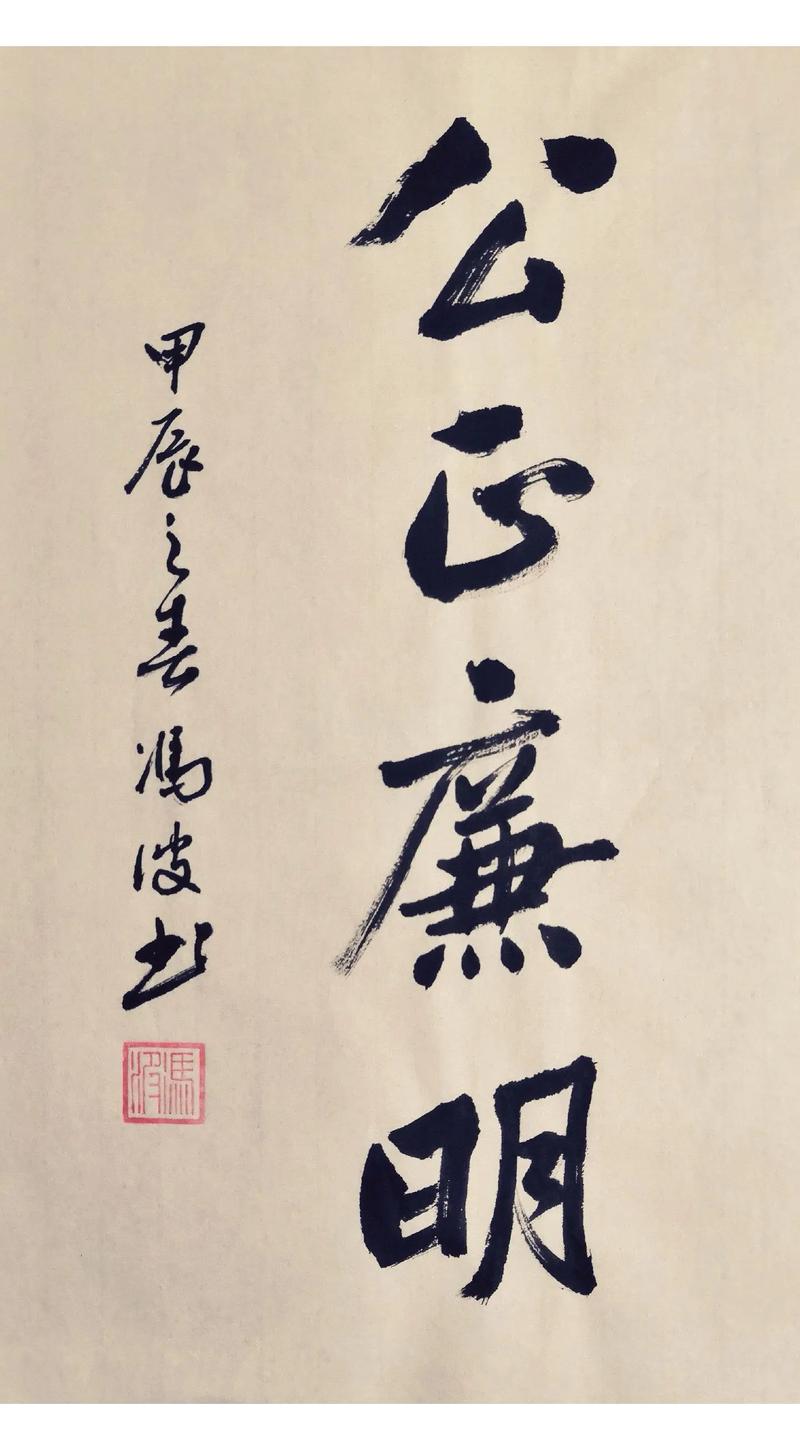 公正廉明
甲辰之春冯波书
冯波